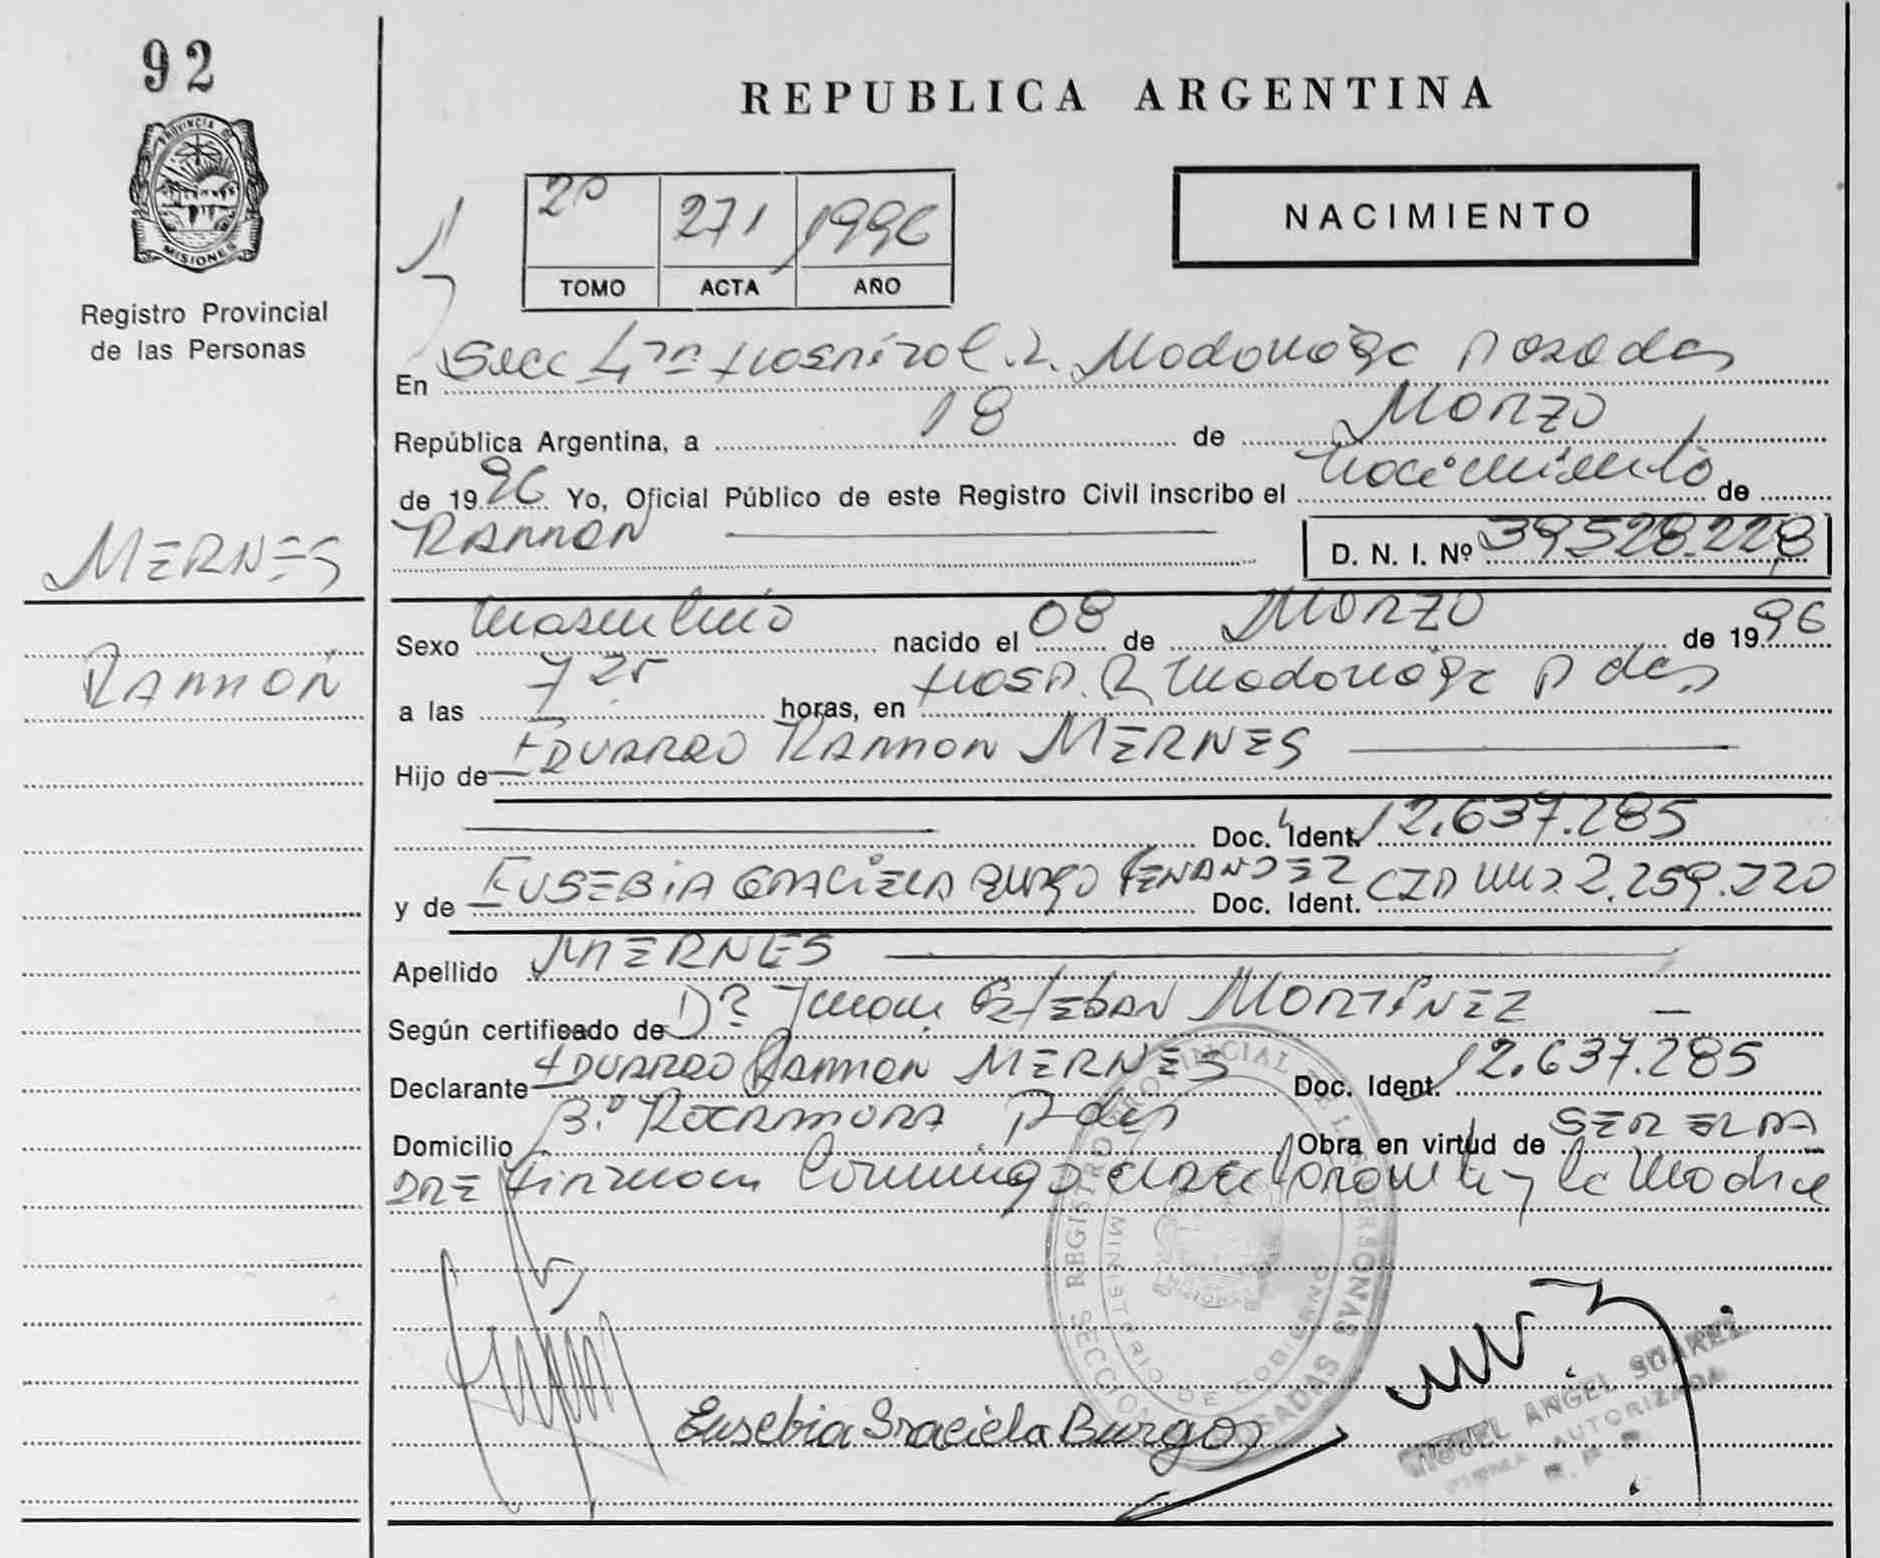 92
REPUBLICA ARGENTINA
PROVINCIA DE
MISIONES
Registro Provincial
de las Personas
2º 271 1996
TOMO ACTA AÑO
NACIMIENTO
En Secc 4ta Hospital R. Madariaga Posadas
República Argentina, a 18 de Marzo
de 1996 Yo, Oficial Público de este Registro Civil inscribo el Nacimiento de
RAMON D. N. I. Nº 39.528.228
MERNES
RAMÓN
Sexo Masculino nacido el 08 de Marzo de 1996
a las 7 25 horas, en Hosp. R. Madariaga Pdas
Hijo de EDUARDO RAMON MERNES
Doc. Ident. 12.637.285
y de EUSEBIA GRACIELA Burgo Doc. Ident. 2.259.220
Apellido MERNES
Según certificado de Dr Juan Esteban MARTINEZ
Declarante EDUARDO RAMON MERNES Doc. Ident. 12.637.285
Domicilio Bº ROCAMORA Pdas Obra en virtud de SER EL PA
DRE Firman Conmigo el declarante y la Madre
REGISTRO PROVINCIAL DE LAS PERSONAS
MINISTERIO DE GOBIERNO
SECCION POSADAS
Eusebia Graciela Burgos
MIGUEL ANGEL SUAREZ
FIRMA AUTORIZADA
R. P. P.